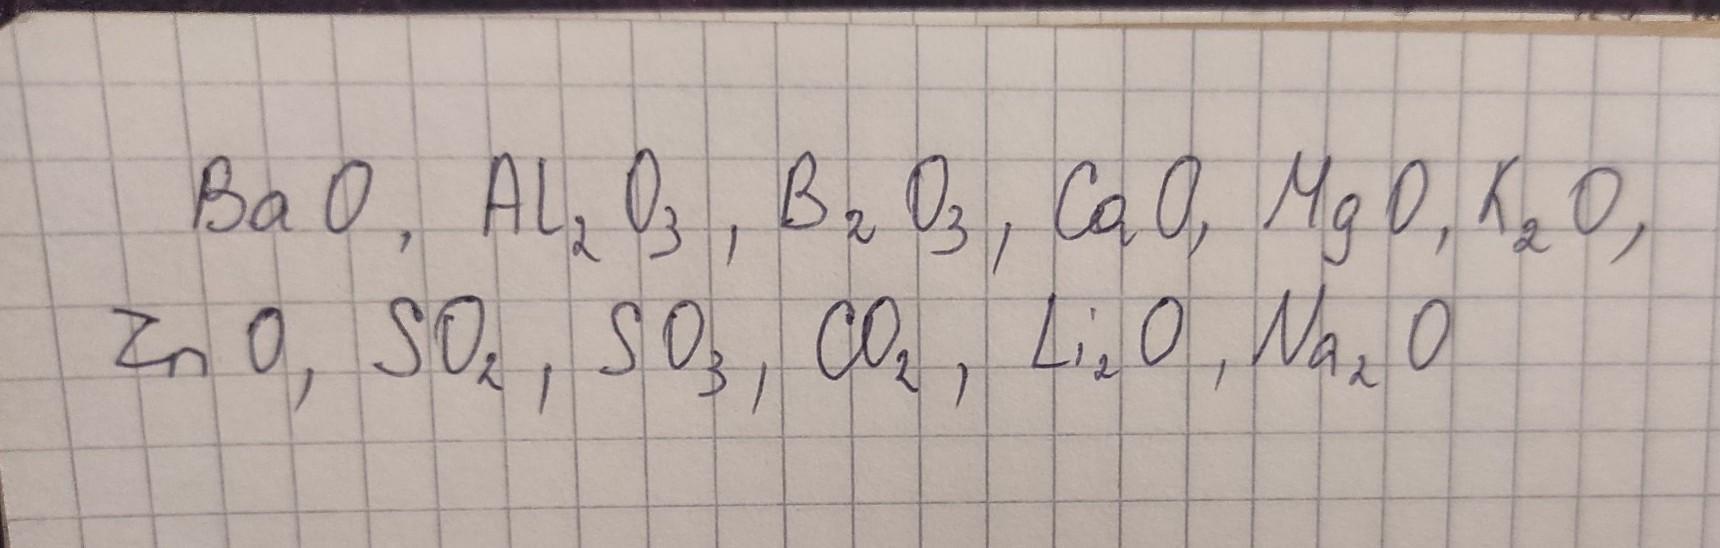 BaO, Al₂O₃, B₂O₃, CaO, MgO, K₂O,
ZnO, SO₂, SO₃, CO₂, Li₂O, Na₂O